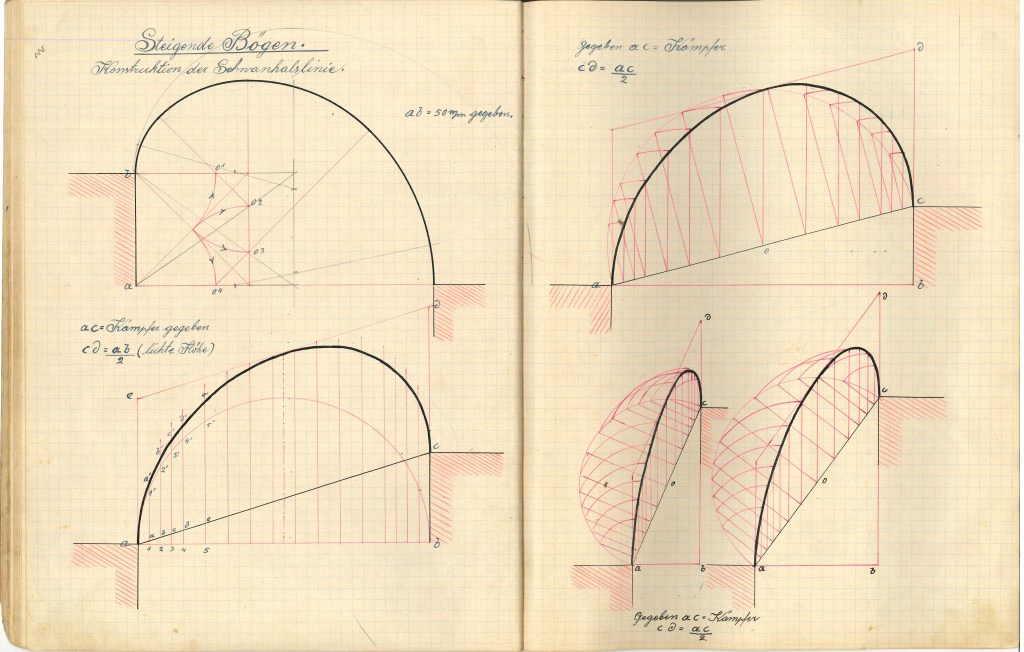 Steigende Bögen.
Konstruktion der Schwanhalslinie.
ab = 50 mm gegeben.
b
01
02
03
04
a
ac = Kämpfer gegeben
cd = ab/2 (lichte Höhe)
d
e
a' b' c' d' e'
1' 2' 3' 4' 5'
c
a b c d e
a 1 2 3 4 5 b
Gegeben ac = Kämpfer
cd = ac/2
d
c
o
a
b
d
c
o
a b
d
c
o
a b
Gegeben ac = Kämpfer
cd = ac/2